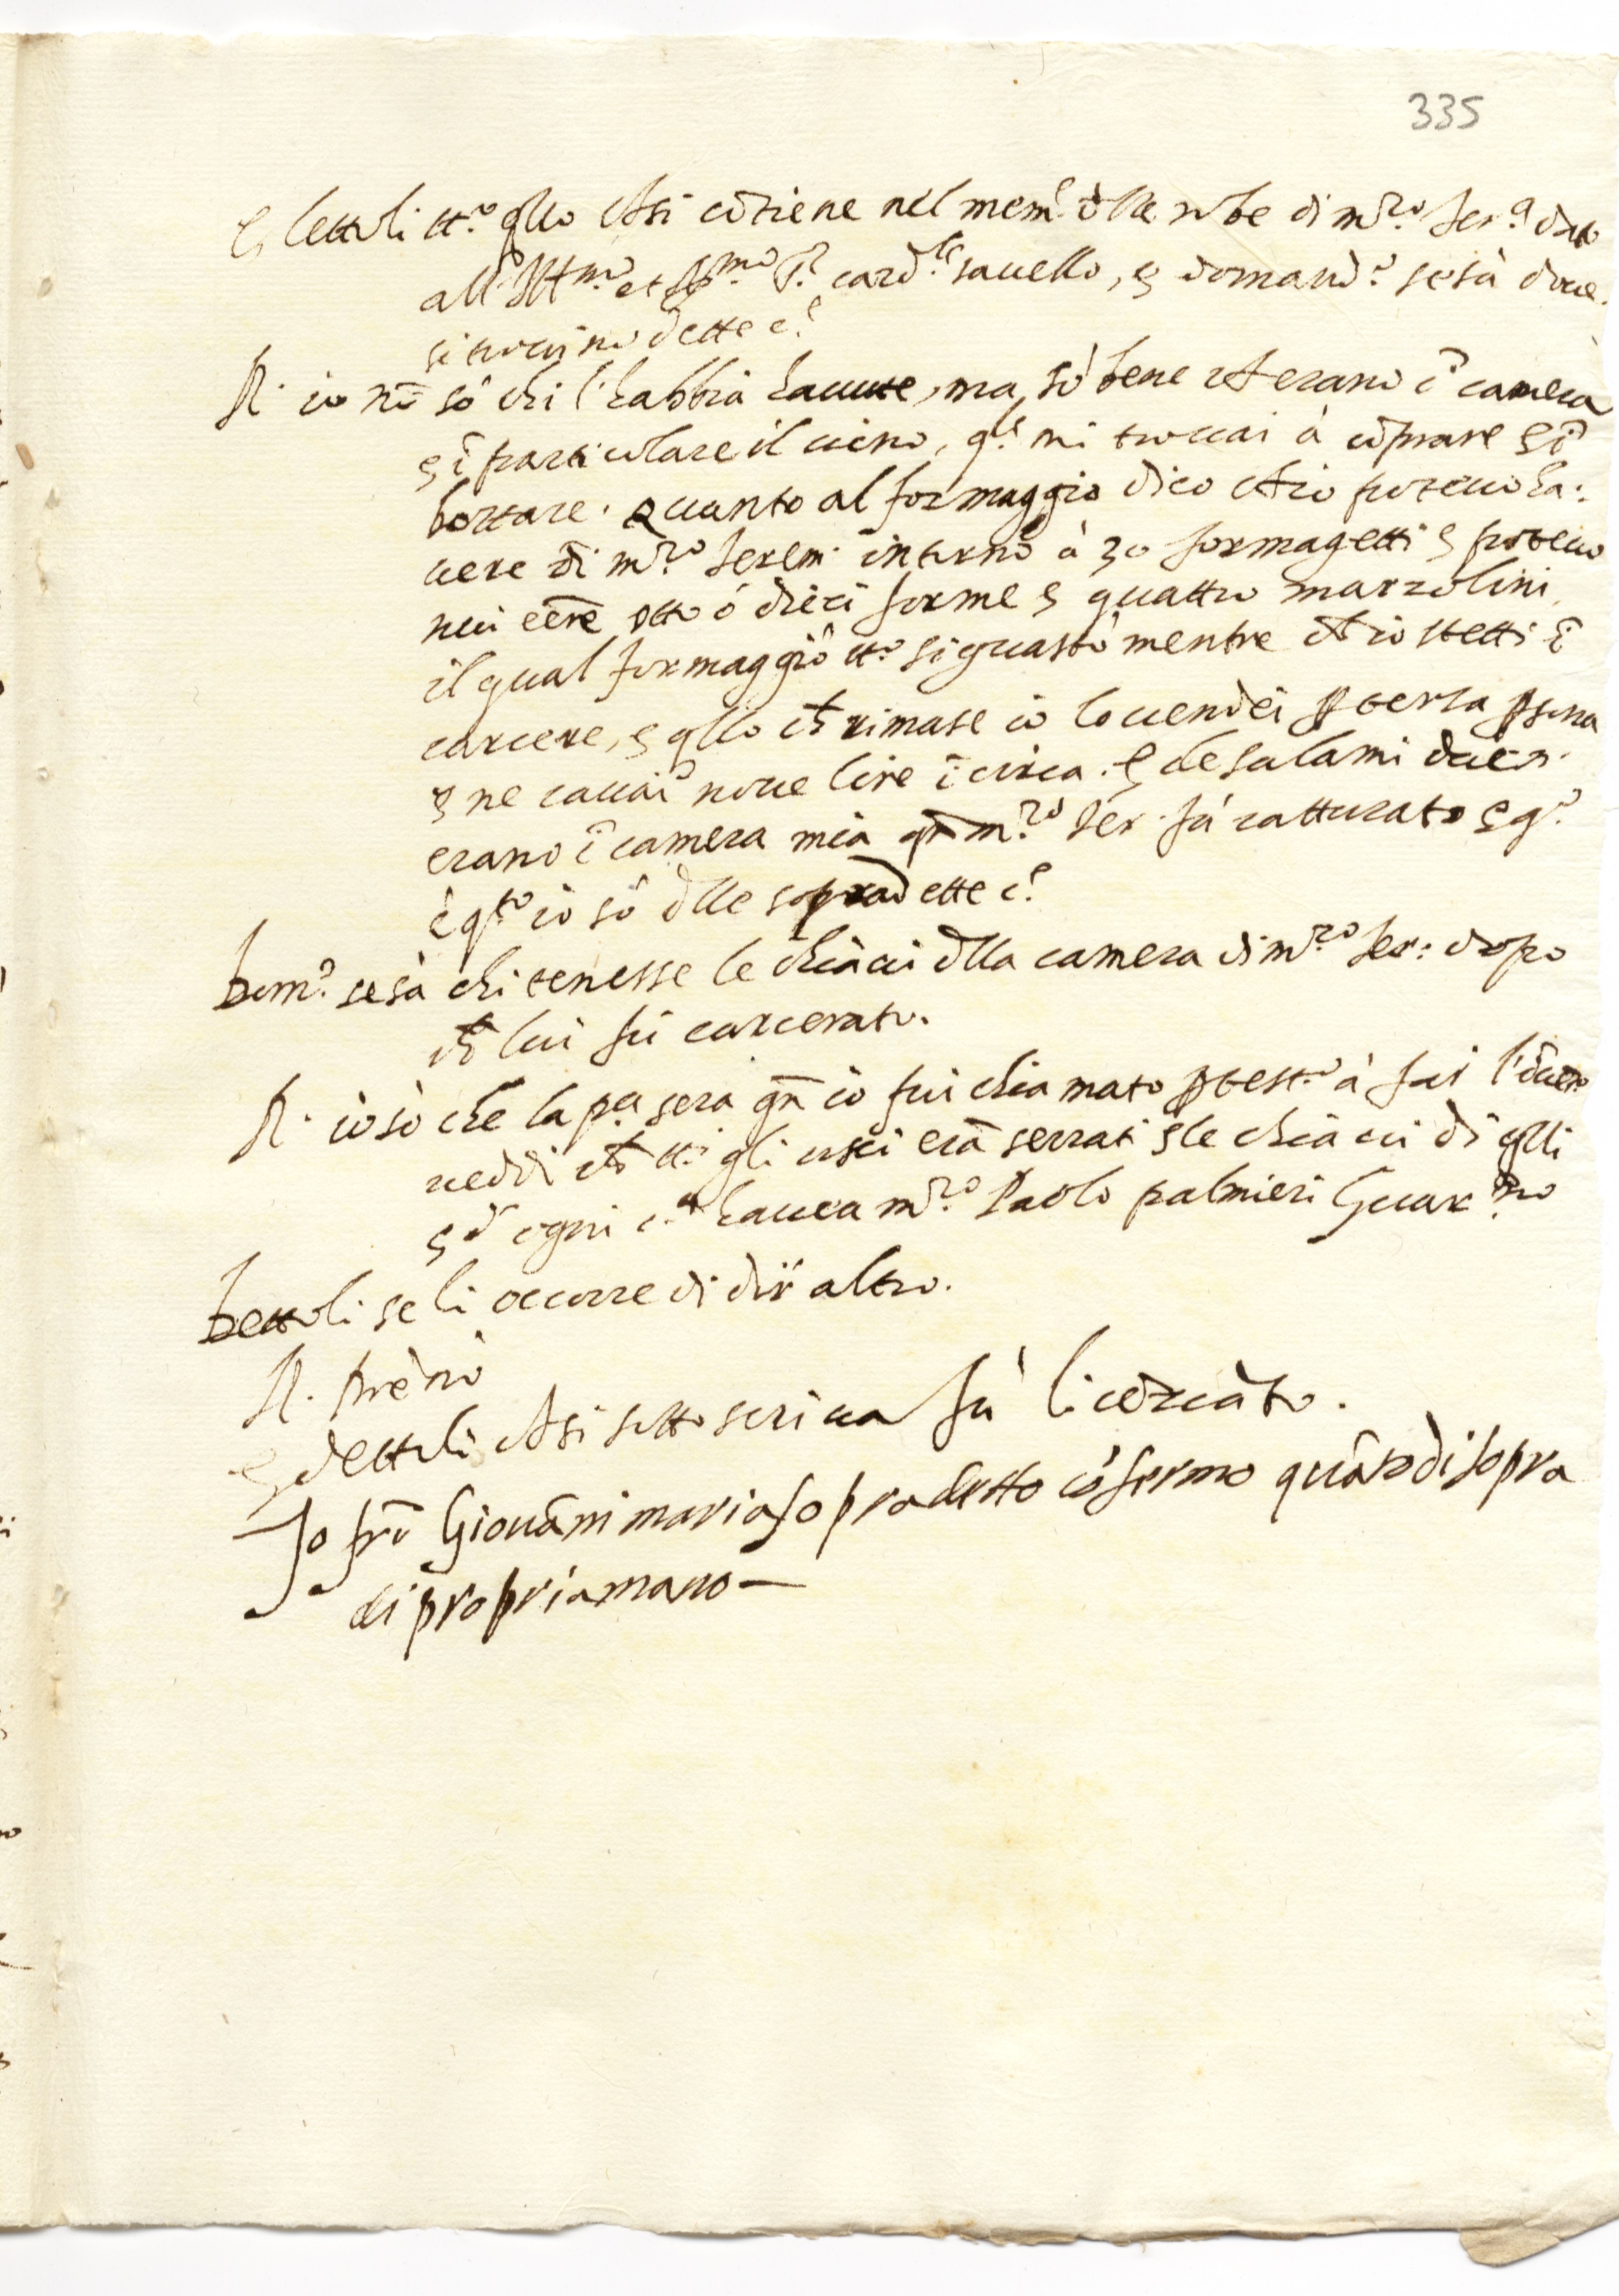 335
E lettoli tt.º q̃llo ch si cõtiene nel mem.l̃e d̃lle robe di m̃rº Ser.ª dato
all Ill.mº et R.mº S.r card.le sauello, e domand.º se sà doue
si trouino dette c.e
R. io nõ sò chi l'habbia hauute, ma sò bene ch erano ĩ camera
e ĩ particulare il uino, q.l mi trouai à cõprare e ĩ
bottare. Quanto al formaggio dico ch io poteuo ha:
uere di m̃rº Serem. intorno à 30 formagetti e poteuo
nui eẽre otto ó dieci forme e quattro marzolini
il qual formaggio tt.º si guastò mentre ch io stetti ĩ
carcere, e q̃llo ch rimase io lo uendei p terza psona
e ne cauai noue lire ĩ circa. E de salami
erano ĩ camera mia qñ m̃rº Ser. fù catturato e q.º
è q.to io sò d̃lle sopradette c.e
Dom.º se sà chi tenesse le chiaui d̃lla camera di m̃rº Ser: dopo
ch lui fù carcerato.
R. io sò che la p.a sera qñ io fui chiamato p test.º à far l'
ueddi ch tt.i gli usci erã serrati e le chiaui di q̃lli
e d' ogni c.a haueua m̃rº Paolo palmieri Guar.no
Dettoli se li occorre di dir altro.
R. Pre nò
E dettoli ch si sotto scriua fù licẽziato.
Io frã Giouãni maria sopradetto cõfermo quãto di sopra
di propria mano —